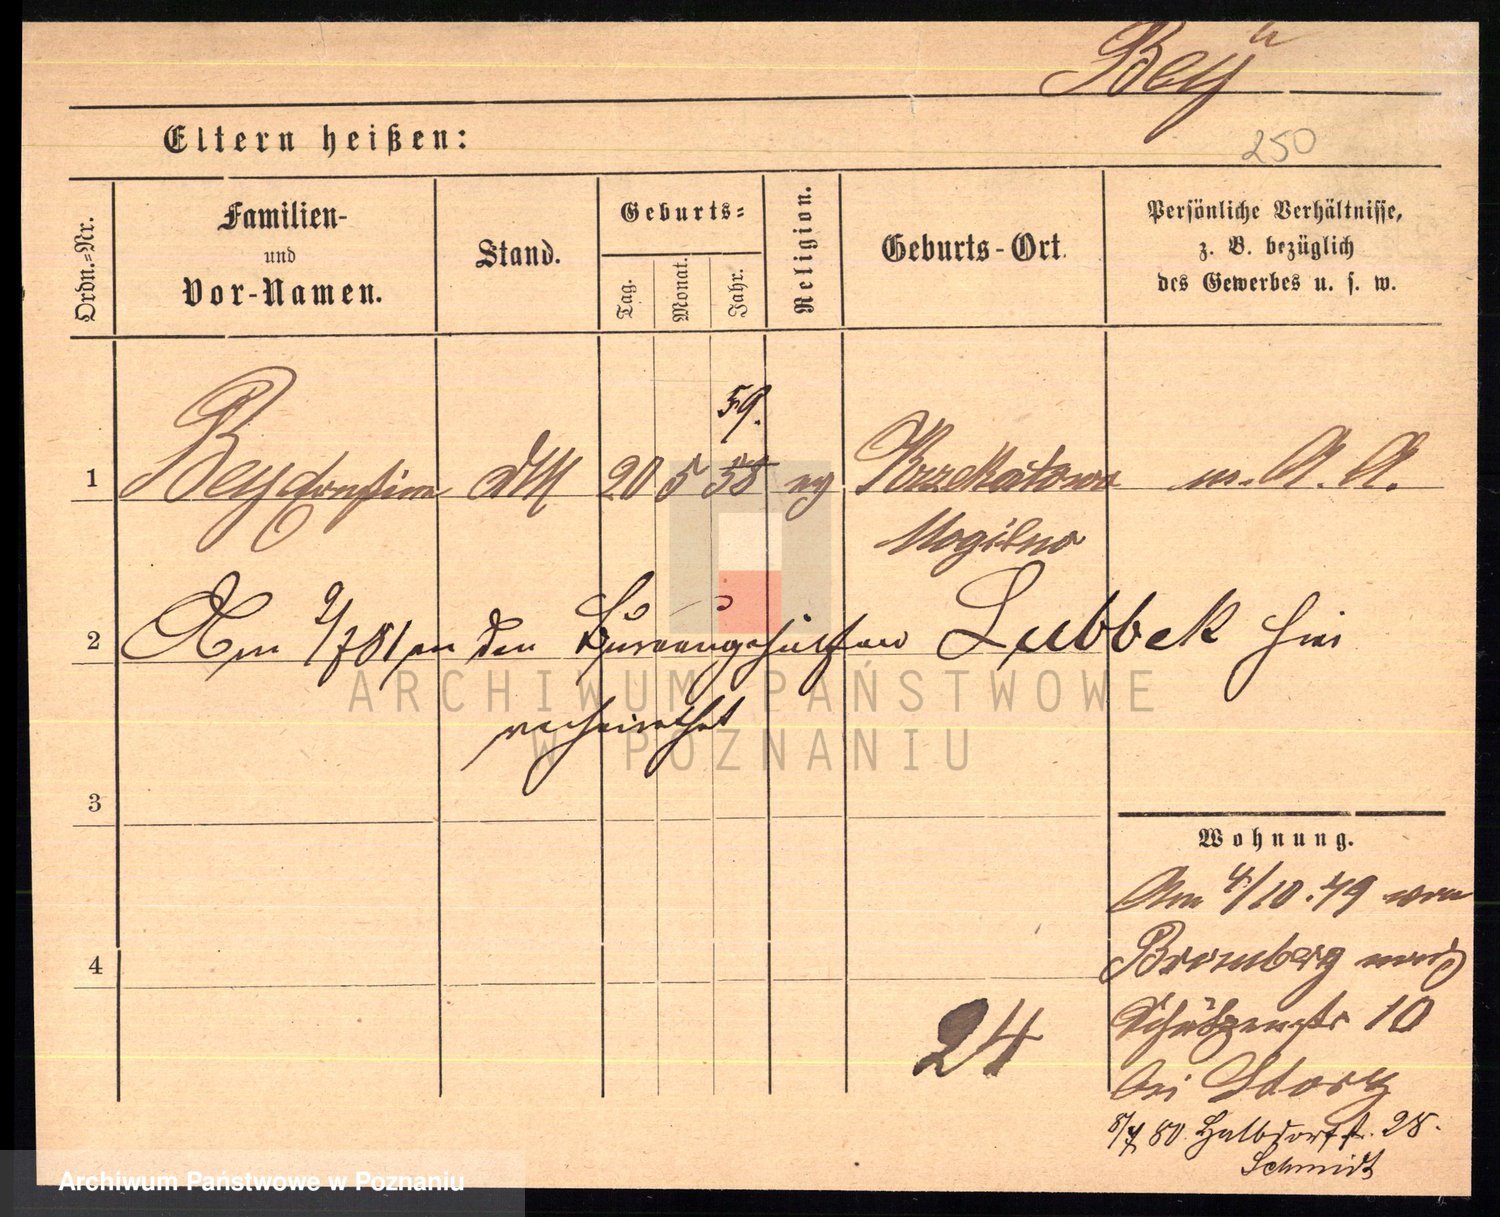 Bey
250
Eltern heißen:
Ordn.-Nr.
Familien-
und
Vor-Namen.
Stand.
Geburts-
Tag.
Monat.
Jahr.
Religion.
Geburts-Ort.
Persönliche Verhältnisse,
z. B. bezüglich
des Gewerbes u. s. w.
59.
1 Bey 20 5 58 ev
Mogilno
2 Am 9/7 81 an den Lubbek hier
verheirathet
ARCHIWUM PAŃSTWOWE
W POZNANIU
3
4
Wohnung.
Am 4/10.79 von
Bromberg nach
Schützenstr 10
bei Story
8/4 80. Halbdorfstr. 28.
Schmidt
24
Archiwum Państwowe w Poznaniu